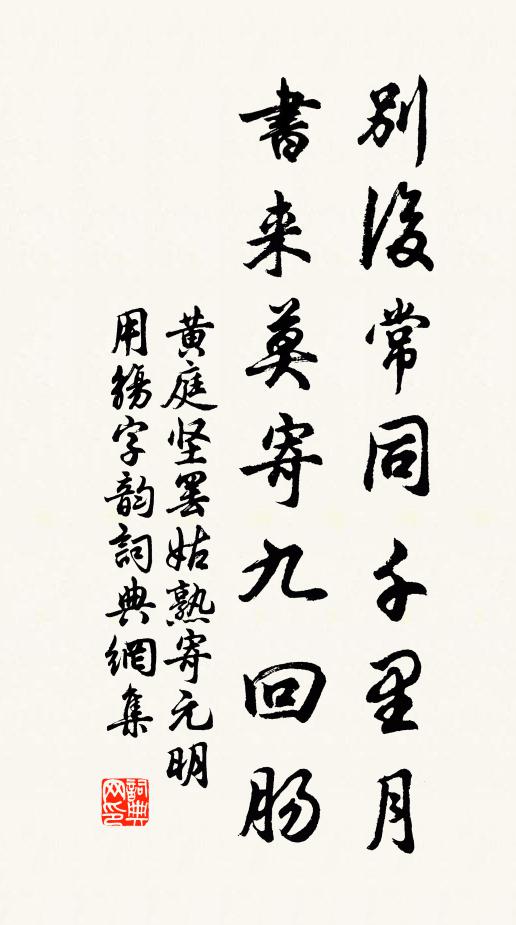 別後常同千里月
書来莫寄九回肠
黄庭坚罢姑熟寄元明
用觴字韵詞典網集
詞典网印